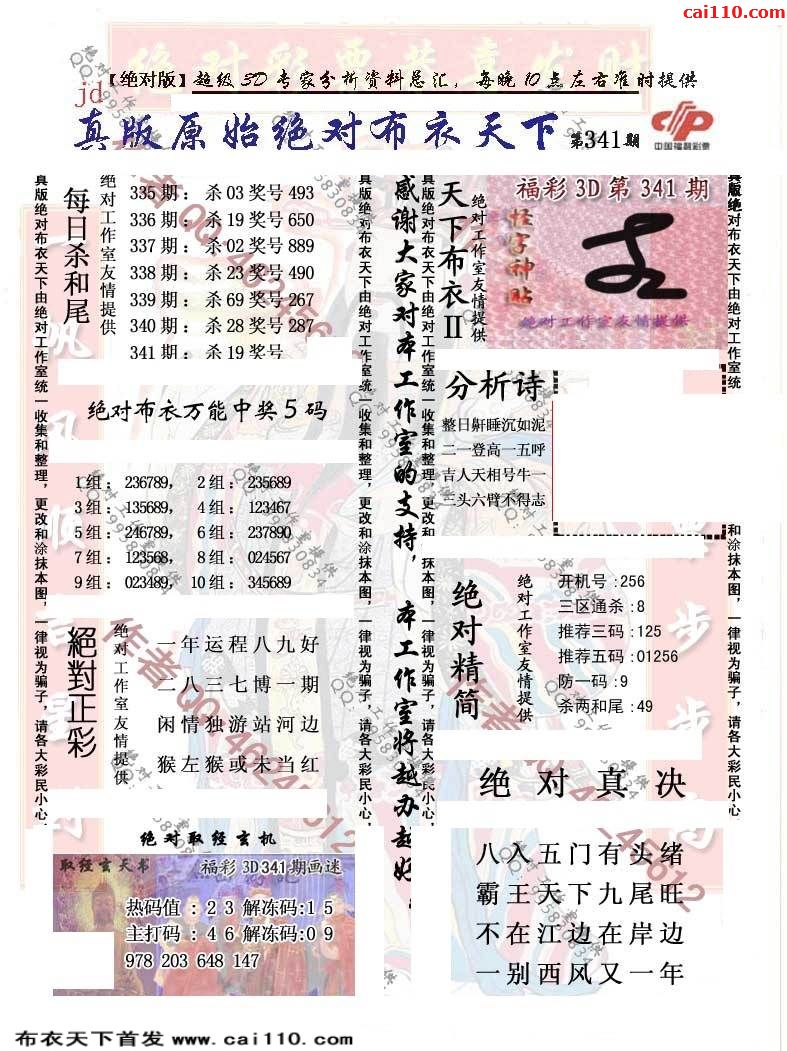 cai110.com
【绝对版】超级3D专家分析资料总汇，每晚10点左右准时提供
jd
真版原始绝对布衣天下 第341期
中国福利彩票
每日杀和尾
绝对工作室友情提供
335期：杀03奖号493
336期：杀19奖号650
337期：杀02奖号889
338期：杀23奖号490
339期：杀69奖号267
340期：杀28奖号287
341期：杀19奖号
绝对布衣万能中奖5码
1组：236789，2组：235689
3组：135689，4组：123467
5组：246789，6组：237890
7组：123568，8组：024567
9组：023489，10组：345689
絕對正彩
绝对工作室友情提供
一年运程八九好
二八三七博一期
闲情独游站河边
猴左猴或未当红
绝对取经玄机
取经玄天书 福彩3D341期画迷
热码值：23解冻码：15
主打码：46解冻码：09
978 203 648 147
真版绝对布衣天下由绝对工作室统一收集和整理，更改和涂抹本图，一律视为骗子，请各大彩民小心，
感谢大家对本工作室的支持，本工作室将越办越好。
天下布衣II
绝对工作室友情提供
福彩3D第341期
怪字神贴
绝对工作室友情提供
分析诗
整日鼾睡沉如泥
二一登高一五呼
吉人天相号牛一
二头六臂不得志
绝对精简
绝对工作室友情提供
开机号:256
三区通杀:8
推荐三码:125
推荐五码:01256
防一码:9
杀两和尾:49
绝对真决
八入五门有头绪
霸王天下九尾旺
不在江边在岸边
一别西风又一年
布衣天下首发 www.cai110.com